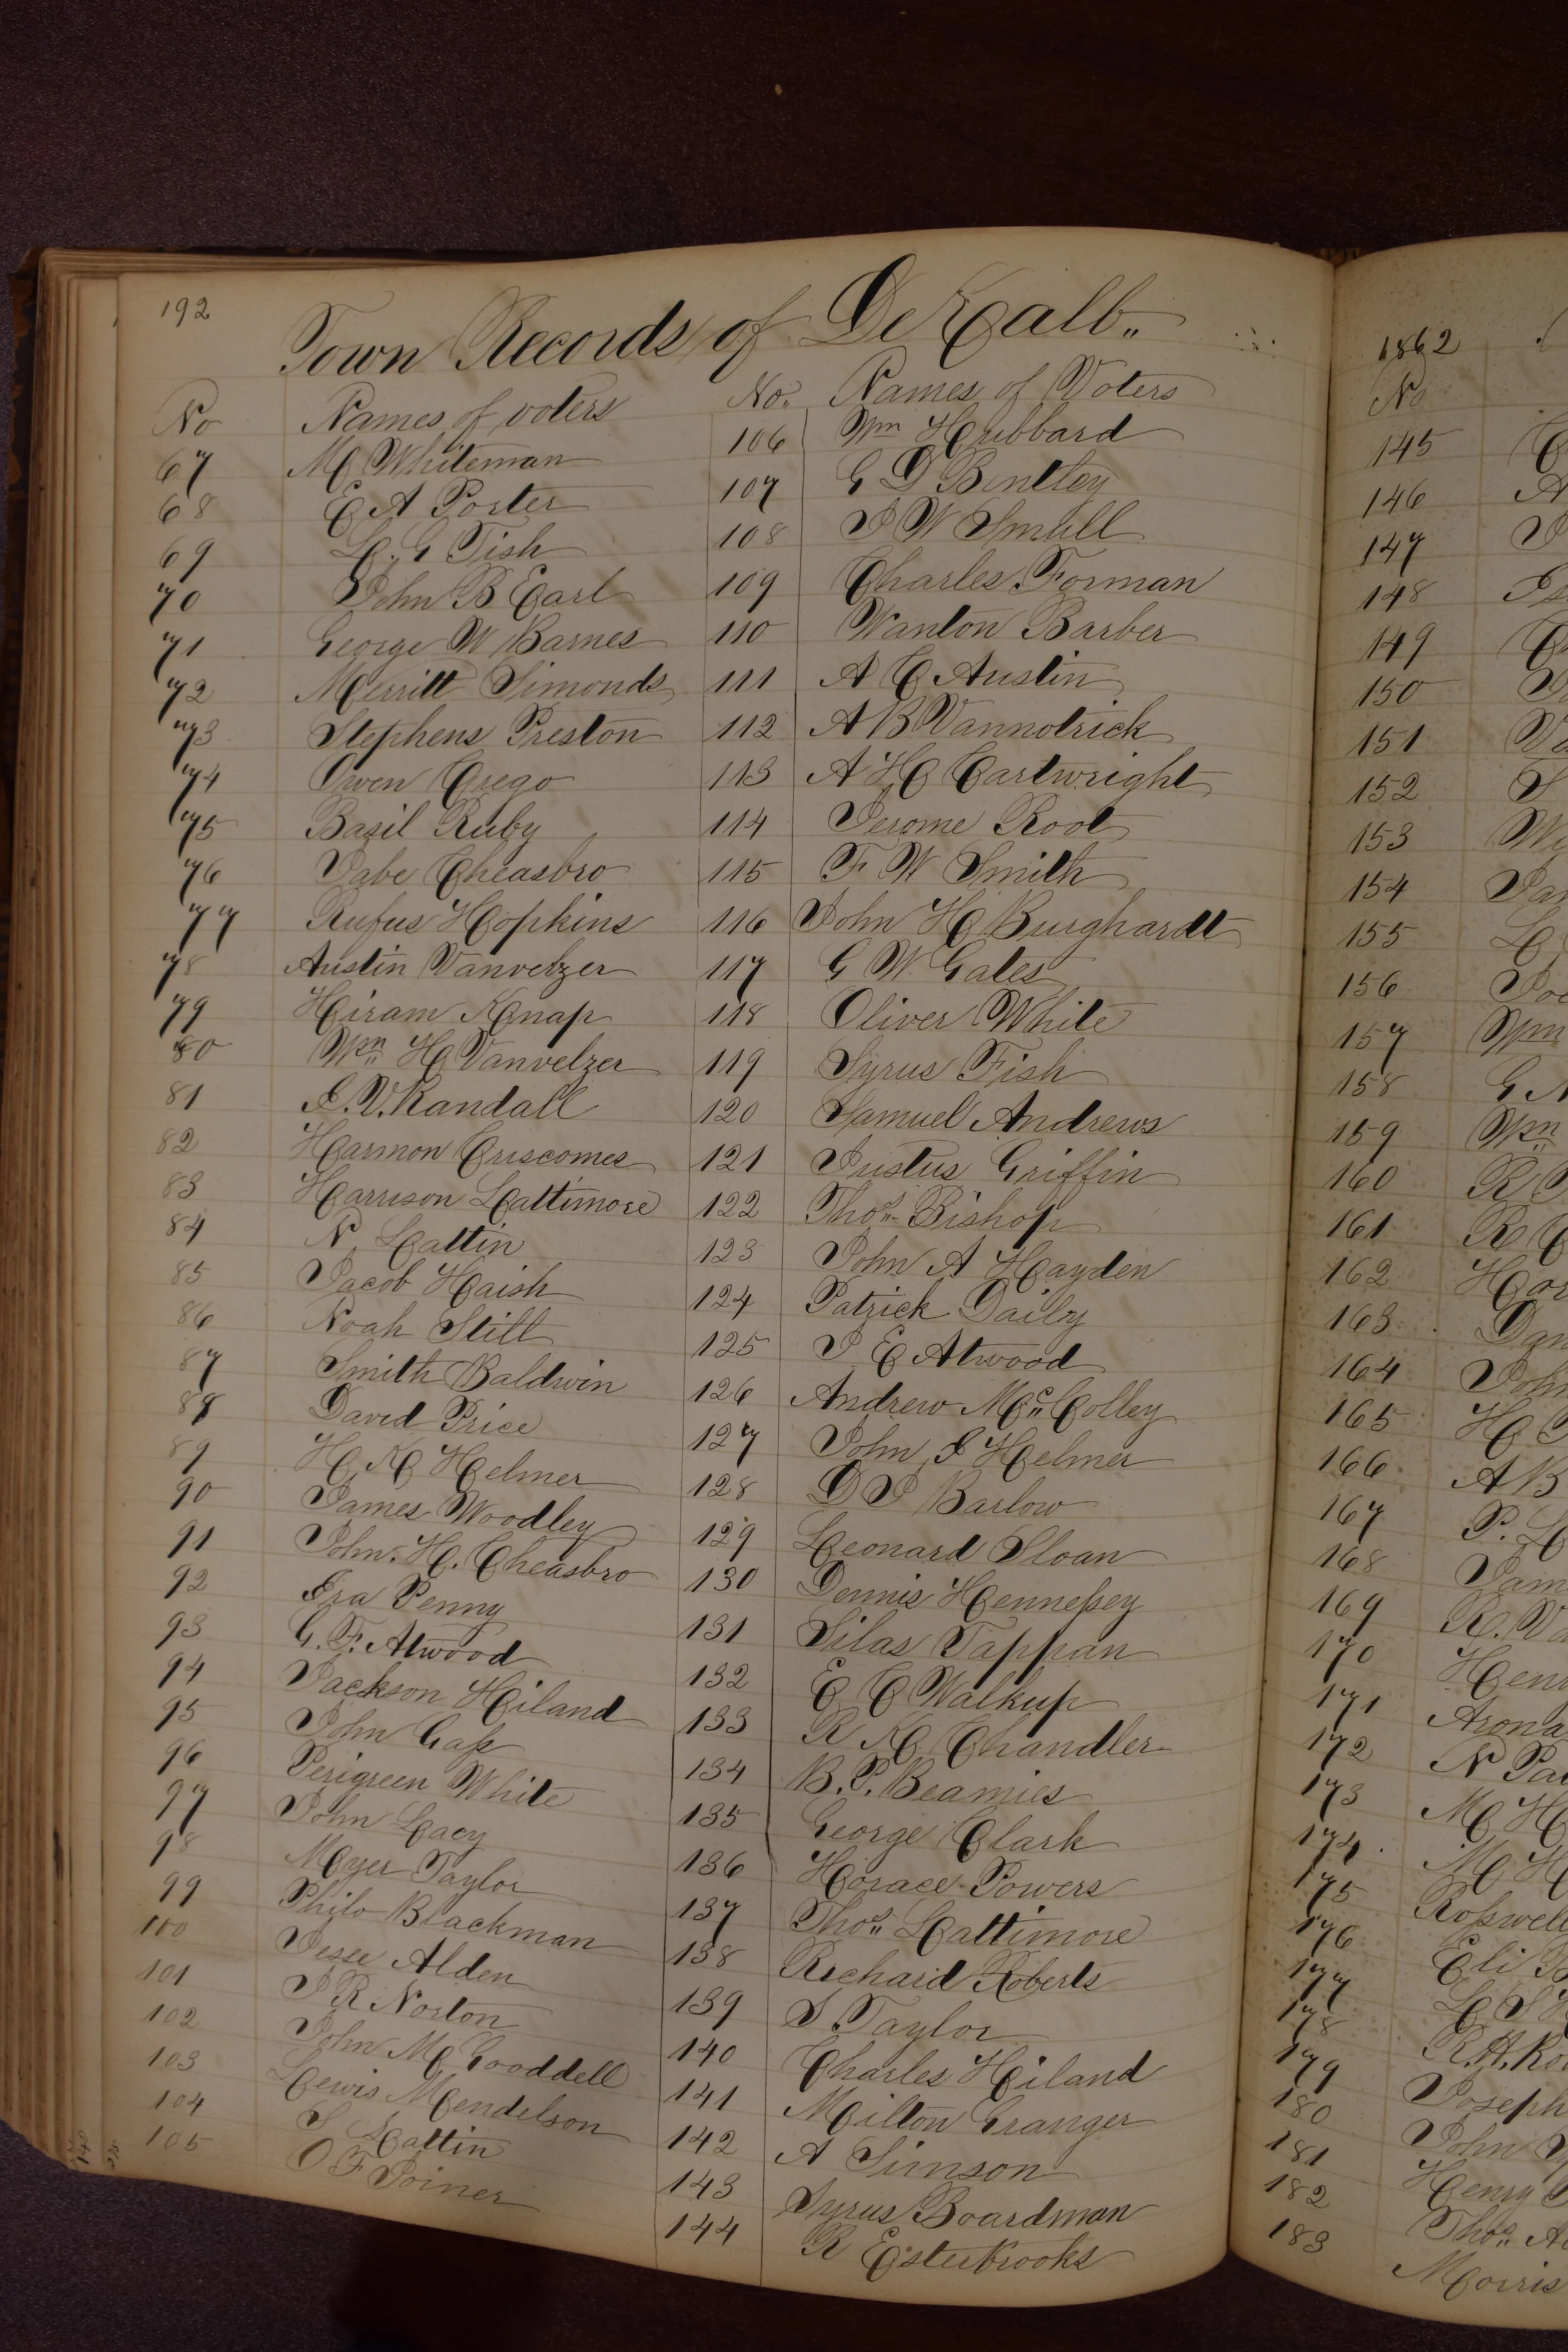 192
Town Records of DeKalb
No Names of voters
67 M Whiteman
68 E A Porter
69 L. G Fish
70 John B Earl
71 George W Barnes
72 Merritt Simonds
73 Stephens Preston
74 Owen Crego
75 Bazil Ruby
76 Jabe Cheasbro
77 Rufus Hopkins
78 Austin Vanvelzer
79 Hiram Knap
80 Wm H Vanvelzer
81 I. V. Randall
82 Harmon Criscomes
83 Harrison Lattimore
84 N Lattin
85 Jacob Haish
86 Noah Still
87 Smith Baldwin
88 David Price
89 H K Helmer
90 James Woodley
91 John. H. Cheasbro
92 Ira Penny
93 G. F. Atwood
94 Jackson Hiland
95 John Gass
96 Perigreen White
97 John Lacy
98 Myer Taylor
99 Philo Blackman
100 Jesee Alden
101 J R Norton
102 John M Gooddell
103 Lewis Mendelson
104 S Lattin
105 O F Joiner
No. Names of Voters
106 Wm Hubbard
107 G D Bentley
108 J W Small
109 Charles Forman
110 Wanton Barber
111 A C Austin
112 A B Vannotrick
113 A H Cartwright
114 Jerome Root
115 F W Smith
116 John H Burghardt
117 G W Gates
118 Oliver White
119 Syrus Fish
120 Samuel Andrews
121 Justus Griffin
122 Thos Bishop
123 John A Hayden
124 Patrick Daily
125 J E Atwood
126 Andrew Mc Colley
127 John I Helmer
128 D J Barlow
129 Leonard Sloan
130 Dennis Hennessey
131 Silas Tappan
132 E C Walkup
133 R K Chandler
134 B. P. Beamies
135 George Clark
136 Horace Powers
137 Thos Lattimore
138 Richard Roberts
139 S Taylor
140 Charles Hiland
141 Milton Granger
142 A Simson
143 Syrus Boardman
144 R Esterbrooks
1862
No
145
146 A
147 J
148
149
150
151
152 S
153
154
155 L
156
157 Wm
158 G
159 Wm
160 R
161 R
162
163
164 John
165 H
166 A B
167 P. L
168
169 R.
170
171
172 N
173 M H
174 M H
175 Rosswell
176 Eli
177 L S
178 R. H.
179 Joseph
180 John
181 Henry
182 Thos
183 Morris